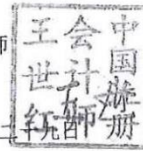 师
中国注册
会计师
王世红